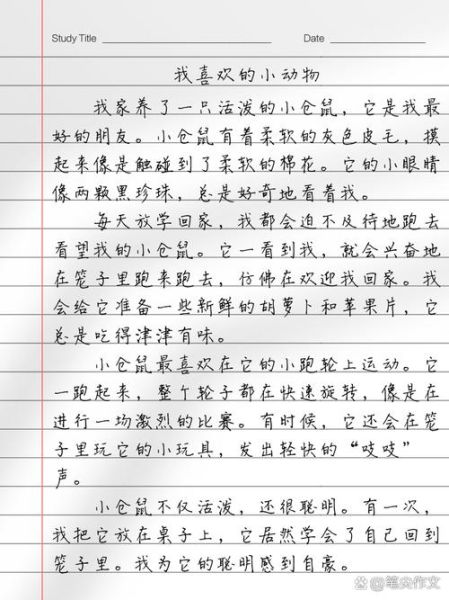 Study Title
Date
我喜欢的小动物
我家养了一只活泼的小仓鼠，它是我最
好的朋友。小仓鼠有着柔软的灰色皮毛，摸
起来像是触碰到了柔软的棉花。它的小眼睛
像两颗黑珍珠，总是好奇地看着我。
每天放学回家，我都会迫不及待地跑去
看望我的小仓鼠。它一看到我，就会兴奋地
在笼子里跑来跑去，仿佛在欢迎我回家。我
会给它准备一些新鲜的胡萝卜和苹果片，它
总是吃得津津有味。
小仓鼠最喜欢在它的小跑轮上运动。它
一跑起来，整个轮子都在快速旋转，像是在
进行一场激烈的比赛。有时候，它还会在笼
子里玩它的小玩具，发出轻快的“吱吱”
声。
小仓鼠不仅活泼，还很聪明。有一次，
我把它放在桌子上，它居然学会了自己回到
笼子里。我为它的聪明感到自豪。
@笔尖作文